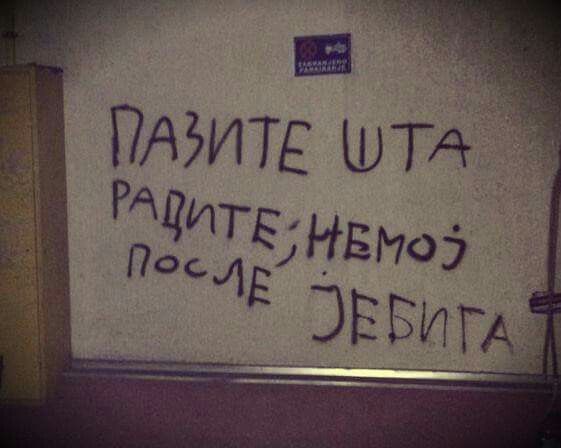 ZABRANJENO
PARKIRANJE
ПАЗИТЕ ШТА
РАДИТЕ, НЕМОЈ
ПОСЛЕ ЈЕБИГА